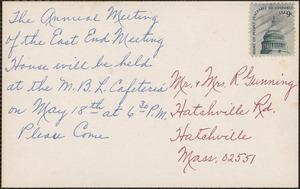 The Annual Meeting
of the East End Meeting
House will be held
at the M.B.L. Cafeteria
on May 18th at 6:30 P.M.
Please Come
Mr. + Mrs. R. Gunning
Hatchville Rd.
Hatchville
Mass. 02551